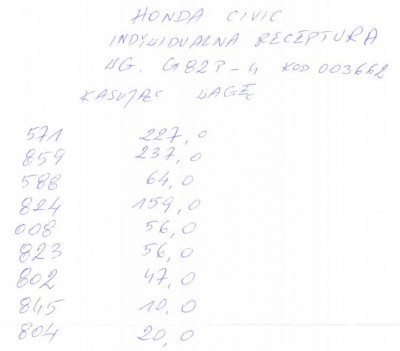 HONDA CIVIC
INDYWIDUALNA RECEPTURA
WG. G82P-4 KOD 003662
KASUJĄC WAGĘ
571 227,0
859 237,0
588 64,0
824 159,0
008 56,0
823 56,0
802 47,0
845 10,0
804 20,0